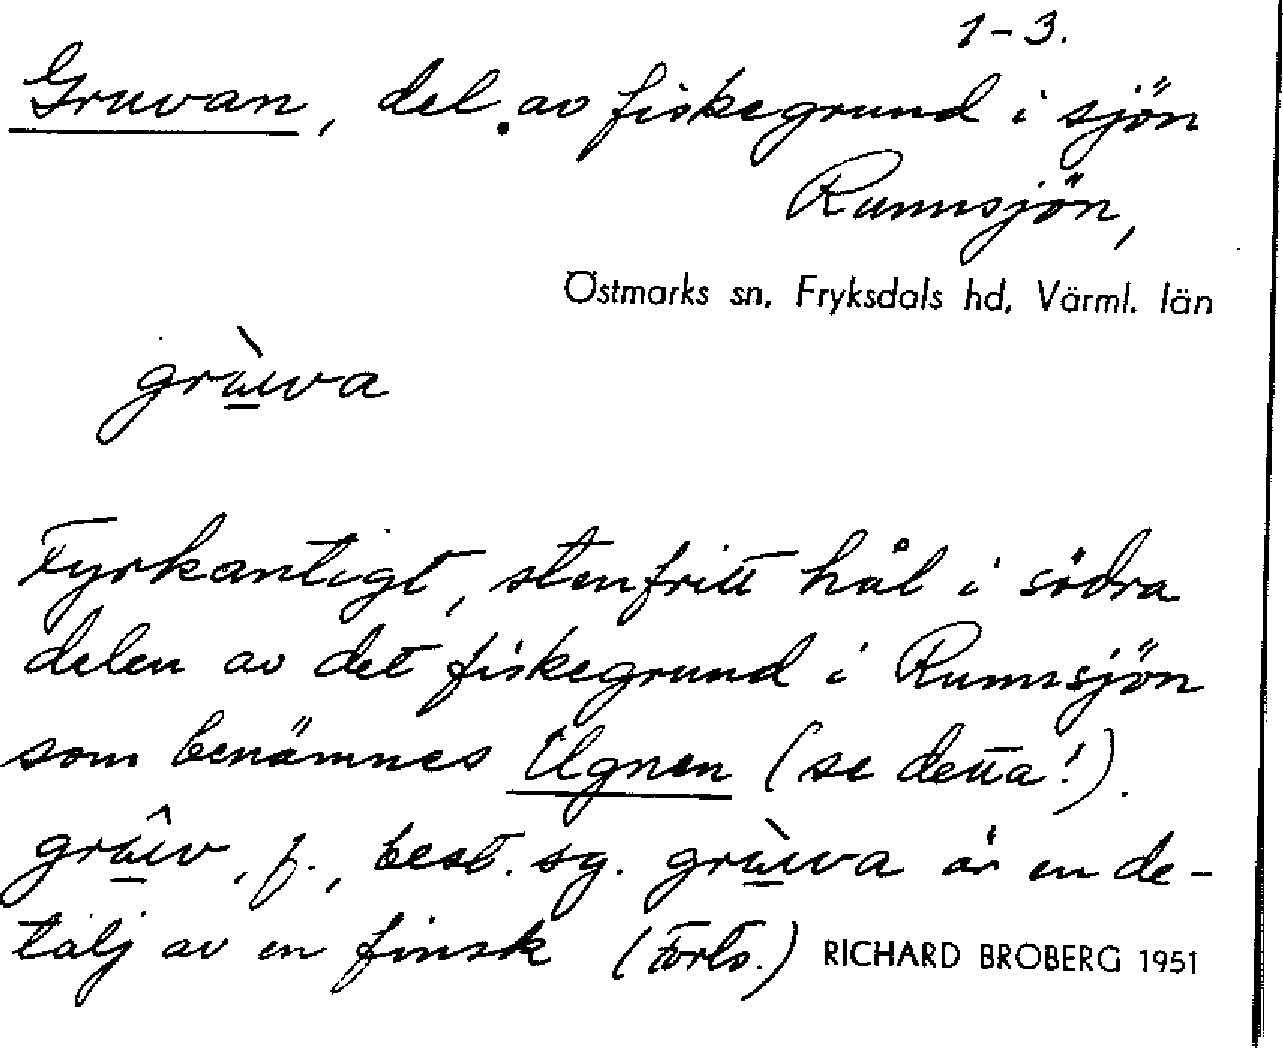 1-3.
Gruvan, del av fiskegrund i sjön
Rumsjön,
Östmarks sn. Fryksdals hd. Värml. län
grùwa
Fyrkantigt, stenfritt hål i södra
delen av det fiskegrund i Rumsjön
som benämnes Ugnen (se detta!).
grûw, f., best. sg. grùwa är en de-
talj av en finsk (Forts.) RICHARD BROBERG 1951